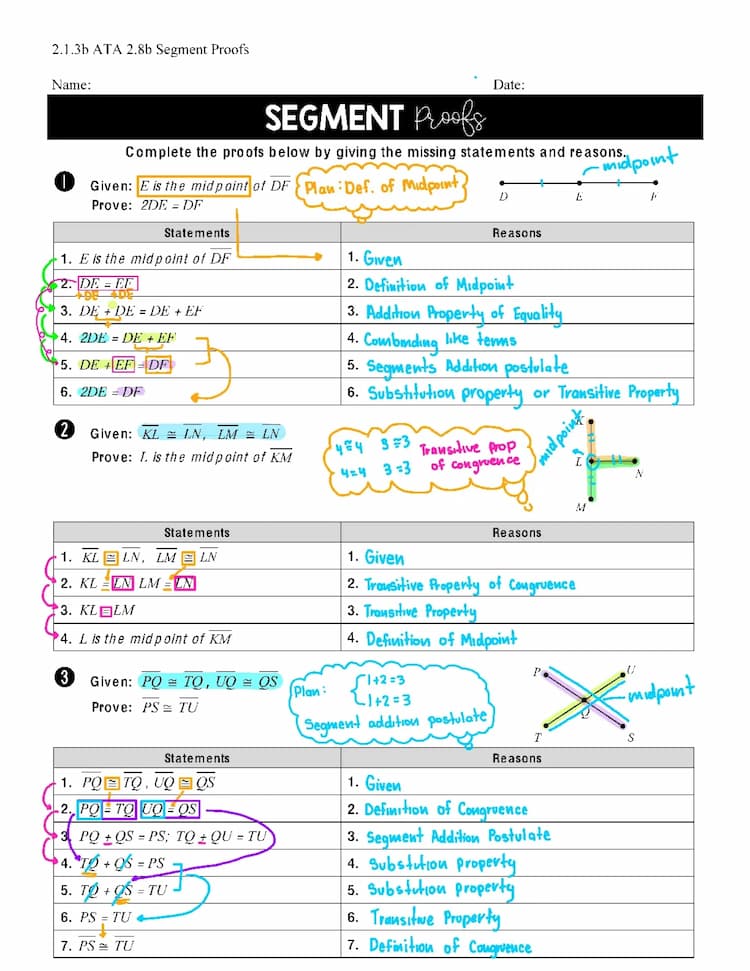 2.1.3b ATA 2.8b Segment Proofs
Name: Date:
SEGMENT Proofs
Complete the proofs below by giving the missing statements and reasons.
1 Given: E is the midpoint of DF Plan: Def. of Midpoint midpoint
Prove: 2DE = DF D E F
Statements Reasons
1. E is the midpoint of DF 1. Given
2. DE = EF 2. Definition of Midpoint
+DE +DE
3. DE + DE = DE + EF 3. Addition Property of Equality
4. 2DE = DE + EF 4. Combinding like terms
5. DE + EF = DF 5. Segments Addition postulate
6. 2DE = DF 6. Substitution property or Transitive Property
2 Given: KL ≅ LN, LM ≅ LN 4≅4 3≅3 Transitive Prop midpoint K
Prove: L is the midpoint of KM 4=4 3=3 of congruence L N
M
Statements Reasons
1. KL ≅ LN, LM ≅ LN 1. Given
2. KL = LN LM = LN 2. Transitive Property of Congruence
3. KL = LM 3. Transitive Property
4. L is the midpoint of KM 4. Definition of Midpoint
3 Given: PQ ≅ TQ, UQ ≅ QS Plan: 1+2=3 P U midpoint
Prove: PS ≅ TU 1+2=3 Q
Segment addition postulate T S
Statements Reasons
1. PQ ≅ TQ, UQ ≅ QS 1. Given
2. PQ = TQ UQ = QS 2. Definition of Congruence
3. PQ + QS = PS; TQ + QU = TU 3. Segment Addition Postulate
4. TQ + QS = PS 4. Substitution property
5. TQ + QS = TU 5. Substitution property
6. PS = TU 6. Transitive Property
7. PS ≅ TU 7. Definition of Congruence